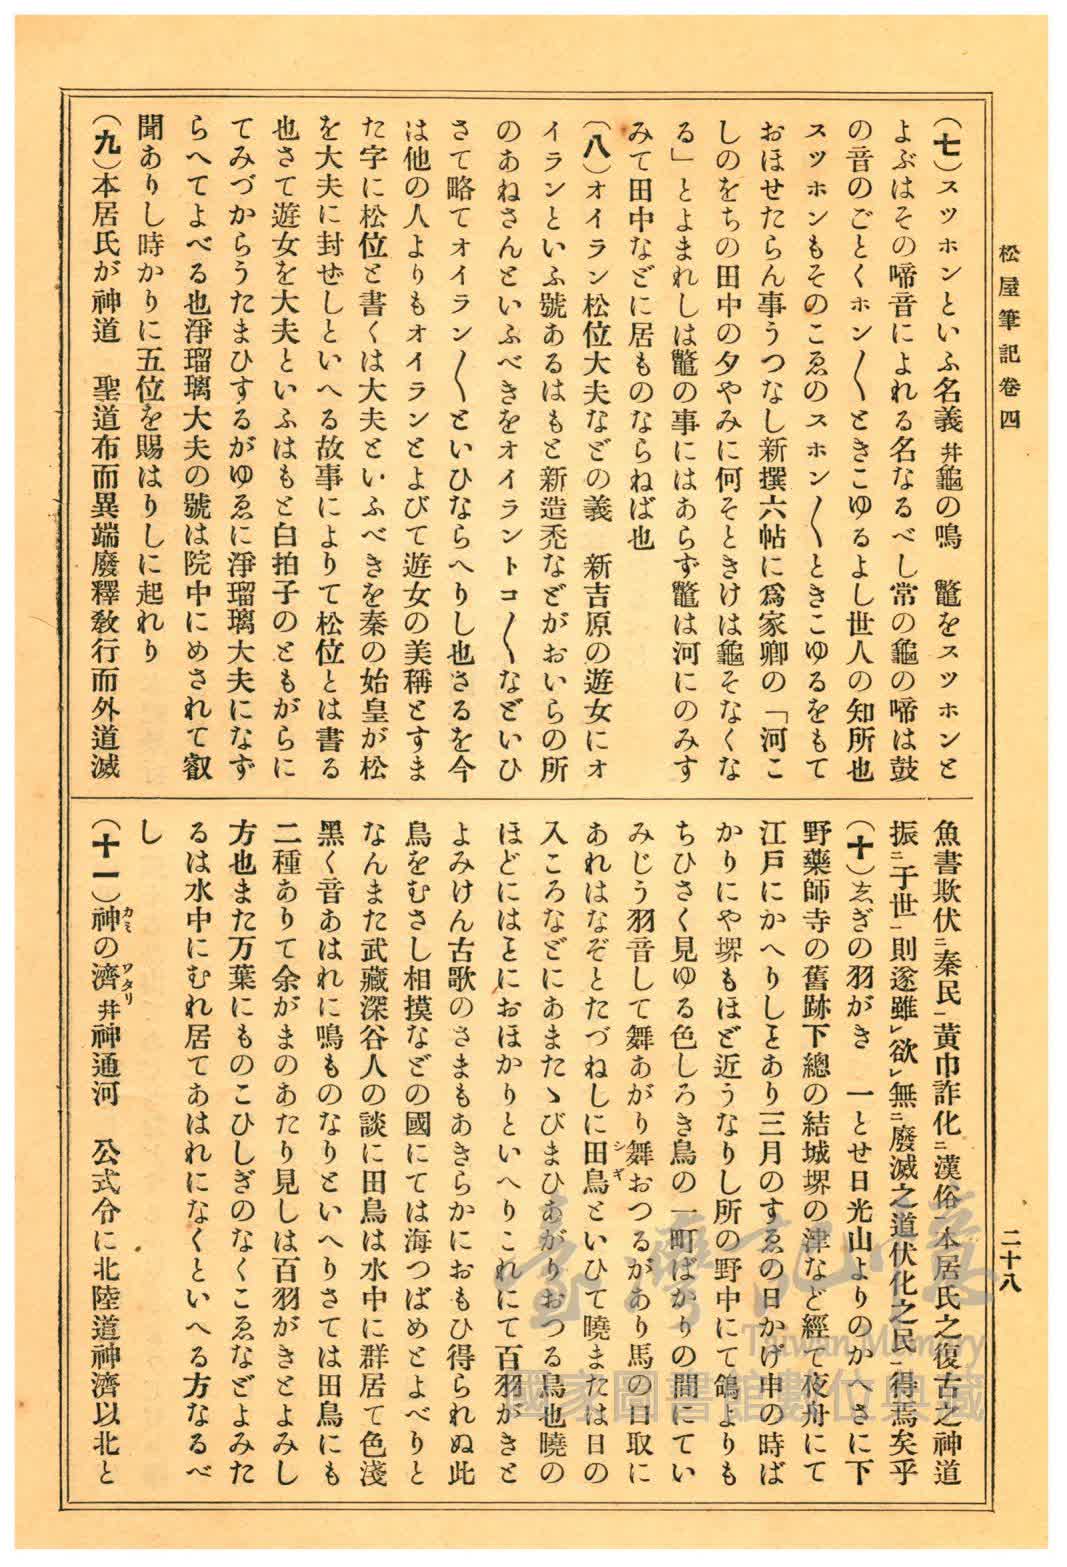 松屋筆記卷四
二十八
(七)スツホンといふ名義幷龜の鳴　鼈をスツホンと
よぶはその啼音によれる名なるべし常の龜の啼は鼓
の音のごとくホン〳〵ときこゆるよし世人の知所也
スツホンもそのこゑのスホン〳〵ときこゆるをもて
おほせたらん事うつなし新撰六帖に爲家卿の「河こ
しのをちの田中の夕やみに何そときけは龜そなくな
る」とよまれしは鼈の事にはあらず鼈は河にのみす
みて田中などに居ものならねば也
(八)オイラン松位大夫などの義　新吉原の遊女にオ
イランといふ號あるはもと新造禿などがおいらの所
のあねさんといふべきをオイラントコ〳〵などいひ
さて略てオイラン〳〵といひならへりし也さるを今
は他の人よりもオイランとよびて遊女の美稱とすま
た字に松位と書くは大夫といふべきを秦の始皇が松
を大夫に封ぜしといへる故事によりて松位とは書る
也さて遊女を大夫といふはもと白拍子のともがらに
てみづからうたまひするがゆゑに淨瑠璃大夫になず
らへてよべる也淨瑠璃大夫の號は院中にめされて叡
聞ありし時かりに五位を賜はりしに起れり
(九)本居氏が神道　聖道布而異端廢釋敎行而外道滅
魚書欺伏㆓秦民㆒黃巾詐化㆓漢俗㆒本居氏之復古之神道
振㆓于世㆒則遂雖㆑欲㆑無㆓廢滅之道伏化之民㆒得焉矣乎
(十)ゑぎの羽がき　一とせ日光山よりのかへさに下
野藥師寺の舊跡下總の結城堺の津など經て夜舟にて
江戸にかへりしとあり三月のすゑの日かげ申の時ば
かりにや堺もほど近うなりし所の野中にて鴿よりも
ちひさく見ゆる色しろき鳥の一町ばかりの間にてい
みじう羽音して舞あがり舞おつるがあり馬の口取に
あれはなぞとたづねしに田鳥シギといひて曉または日の
入ころなどにあまたゝびまひあがりおつる鳥也曉の
ほどにはとにおほかりといへりこれにて百羽がきと
よみけん古歌のさまもあきらかにおもひ得られぬ此
鳥をむさし相摸などの國にては海つばめとよべりと
なんまた武藏深谷人の談に田鳥は水中に群居て色淺
黑く音あはれに鳴ものなりといへりさては田鳥にも
二種ありて余がまのあたり見しは百羽がきとよみし
方也また万葉にものこひしぎのなくこゑなどよみた
るは水中にむれ居てあはれになくといへる方なるべ
し
(十一)神カミの濟ワタリ幷神通河　公式令に北陸道神濟以北と
臺灣記憶
Taiwan Memory
國家圖書館數位典藏